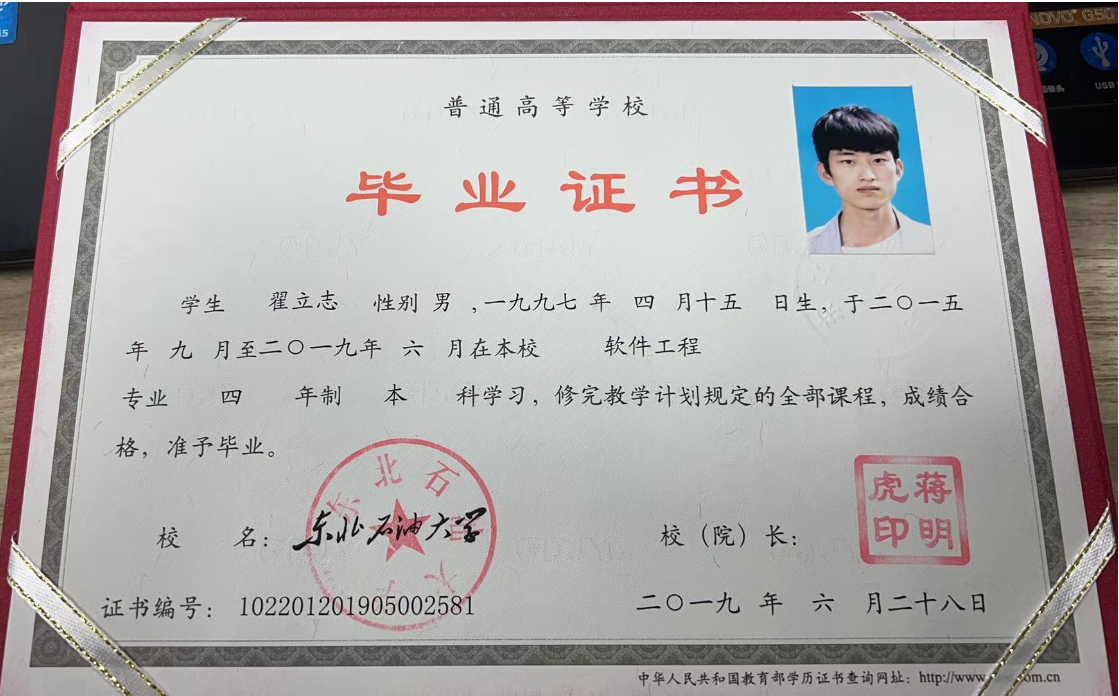 普通高等学校
毕业证书
学生 翟立志 性别 男 ,一九九七 年 四 月十五 日生，于二〇一五
年 九 月至二〇一九年 六 月在本校 软件工程
专业 四 年制 本 科学习，修完教学计划规定的全部课程，成绩合
格，准予毕业。
校 名：东北石油大学
校（院）长：
蒋明虎印
证书编号：102201201905002581
二〇一九 年 六 月二十八日
中华人民共和国教育部学历证书查询网址：http://www. .com.cn